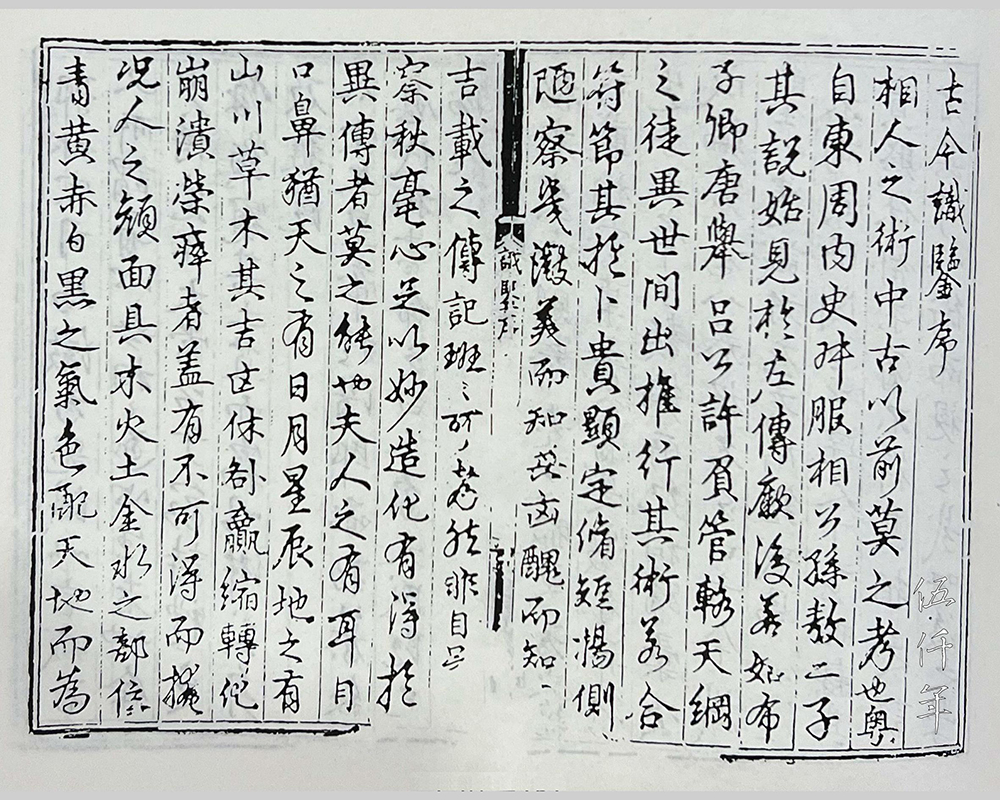 古今識鑒序
相人之術中古以前莫之考也粤
自東周内史叔服相公孫敖二子
其說始見於左傳厥後若姑布
子卿唐舉呂公許負管輅天綱
之徒異世間出推行其術若合
符節其於卜貴顯定脩短揚側
陋察幾微美而知其凶醜而知
識鑒序
吉載之傳記班〻可然非目足
察秋毫心足以妙造化有得於
異傳者莫之能也夫人之有耳目
口鼻猶天之有日月星辰地之有
山川草木其吉凶休咎贏縮轉化
崩潰榮瘁者蓋有不可得而掩
况人之顔面具木火土金水之部位
青黄赤白黒之氣色配天地而為
伍仟年